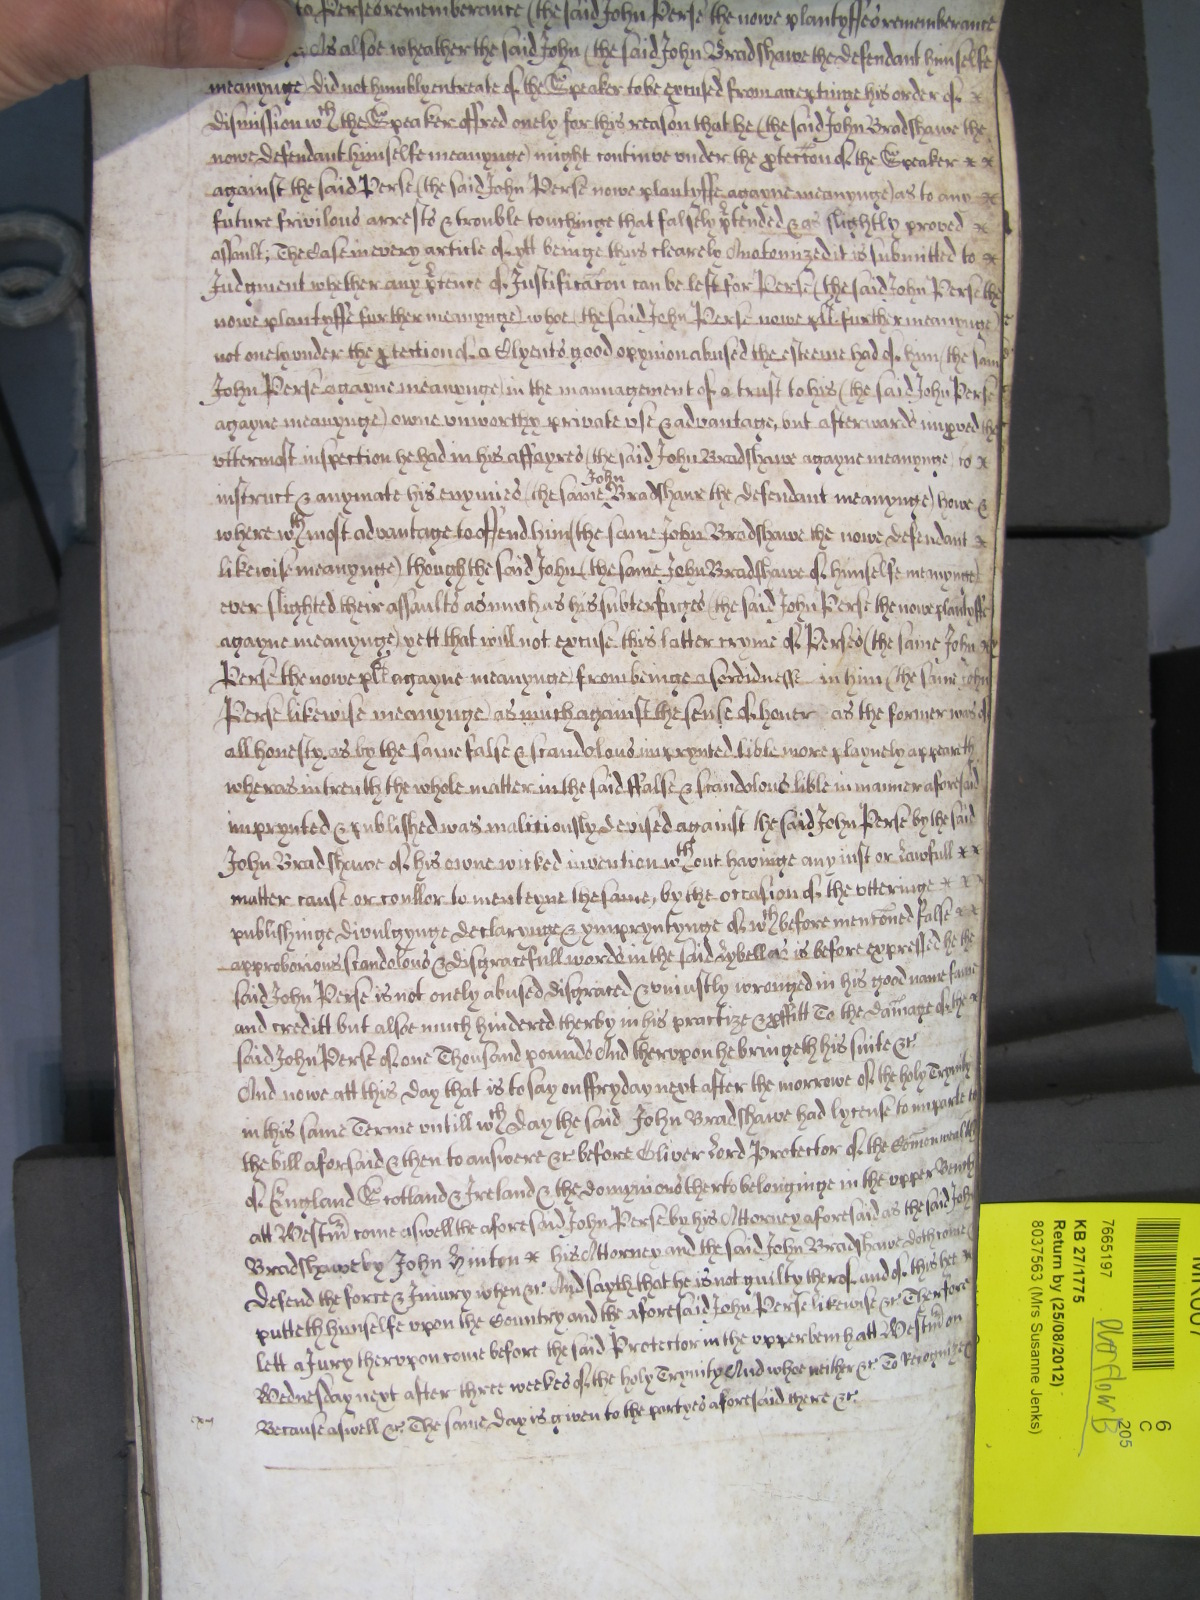 to Perses rememberance (the said John Perse the nowe plantyffes rememberance
As alsoe wheather the said John (the said John Bradshawe the defendant himselfe
meanynge) did not humbly entreate of the Speaker to be excused from acceptinge his order of x
dismission wth the Speaker offred onely for this reason that he (the said John Bradshawe the
nowe defendant himselfe meanynge) might continue under the ptection of the Speaker x x
against the said Perse (the said John Perse nowe plantyffe agayne meanynge) as to any x
future frivilous arrests & trouble touchinge that falsely ptended & as slightly proved x
assault; The Case in every article of ytt beinge thus clearely Anotomized it is submitted to x
Judgment whether any ptence of Justification can be left for Perse (the said John Perse the
nowe plantyffe further meanynge) whoe (the said John Perse nowe plt further meanynge)
not onely under the ptection of a Clyents good opynion abused the esteeme had of him (the said
John Perse agayne meanynge) in the mannagement of a trust to his (the said John Perse
agayne meanynge) owne unworthy private use & advantage, but afterwards improved the
uttermost inspection he had in his affayres (the said John Bradshawe agayne meanynge) to x
instruct & anymate his enymies (the same John Bradshawe the defendant meanynge) howe &
where wth most advantage to offend him (the same John Bradshawe the nowe defendant x
likewise meanynge) though the said John (the same John Bradshawe of himselfe meanynge)
ever slighted their assaults as much as his subterfuges (the said John Perse the nowe plantyffe
agayne meanynge) yett that will not excuse this latter cryme of Perses (the same John x
Perse the nowe plt agayne meanynge) from beinge a sordidnesse in him (the same John
Perse likewise meanynge) as much against the sense of honer as the former was of
all honesty, as by the same false & scandolous imprynted lible more playnely appeareth
wheras in treuth the whole matter in the said ffalse & scandolous lible in manner aforesaid
imprynted & published was malitiously devised against the said John Perse by the said
John Bradshawe of his owne wicked invention wthout havinge any iust or lawfull x x
matter cause or coullor to menteyne the same, by the occasion of the utteringe x x x
publishinge divulgynge declarynge & ymprynтynge of wth before mentoned false x x
approborious scandolous & disgracefull words in the said lybell as is before expressed he the
said John Perse is not onely abused disgraced & uniustly wronged in his good name fame
and creditt but alsoe much hindered therby in his practize & pffitt To the damage of the x
said John Perse of one Thousand pounds And therupon he bringeth his suite &c
And nowe att this day that is to say on ffryday next after the morrowe of the holy Trynity
in this same Terme untill wth day the said John Bradshawe had lycense to imparle to
the bill aforsaid & then to answere &c before Oliver Lord Protector of the Comonwealth
of England Scotland & Ireland & the domynions therto belonginge in the upper Bench
att Westm come aswell the aforesaid John Perse by his Attorney aforesaid as the said John
Bradshawe by John Hinton x his Attorney and the said John Bradshawe doth come &
defend the force & Iniury when &c And sayth that he is not guilty therof and of this hee x
putteth himselfe upon the Country and the aforesaid John Perse likewise &c Therfore
lett a Jury therupon come before the said Protector in the upper bench att Westm on
Wednesday next after three weekes of the holy Trynity And whoe neither &c To Recognize &c
Because aswell &c The same day is given to the partyes aforesaid there &c
7665197
KB 27/1775
Return by (25/08/2012)
8037563 (Mrs Susanne Jenks)
6
C
205